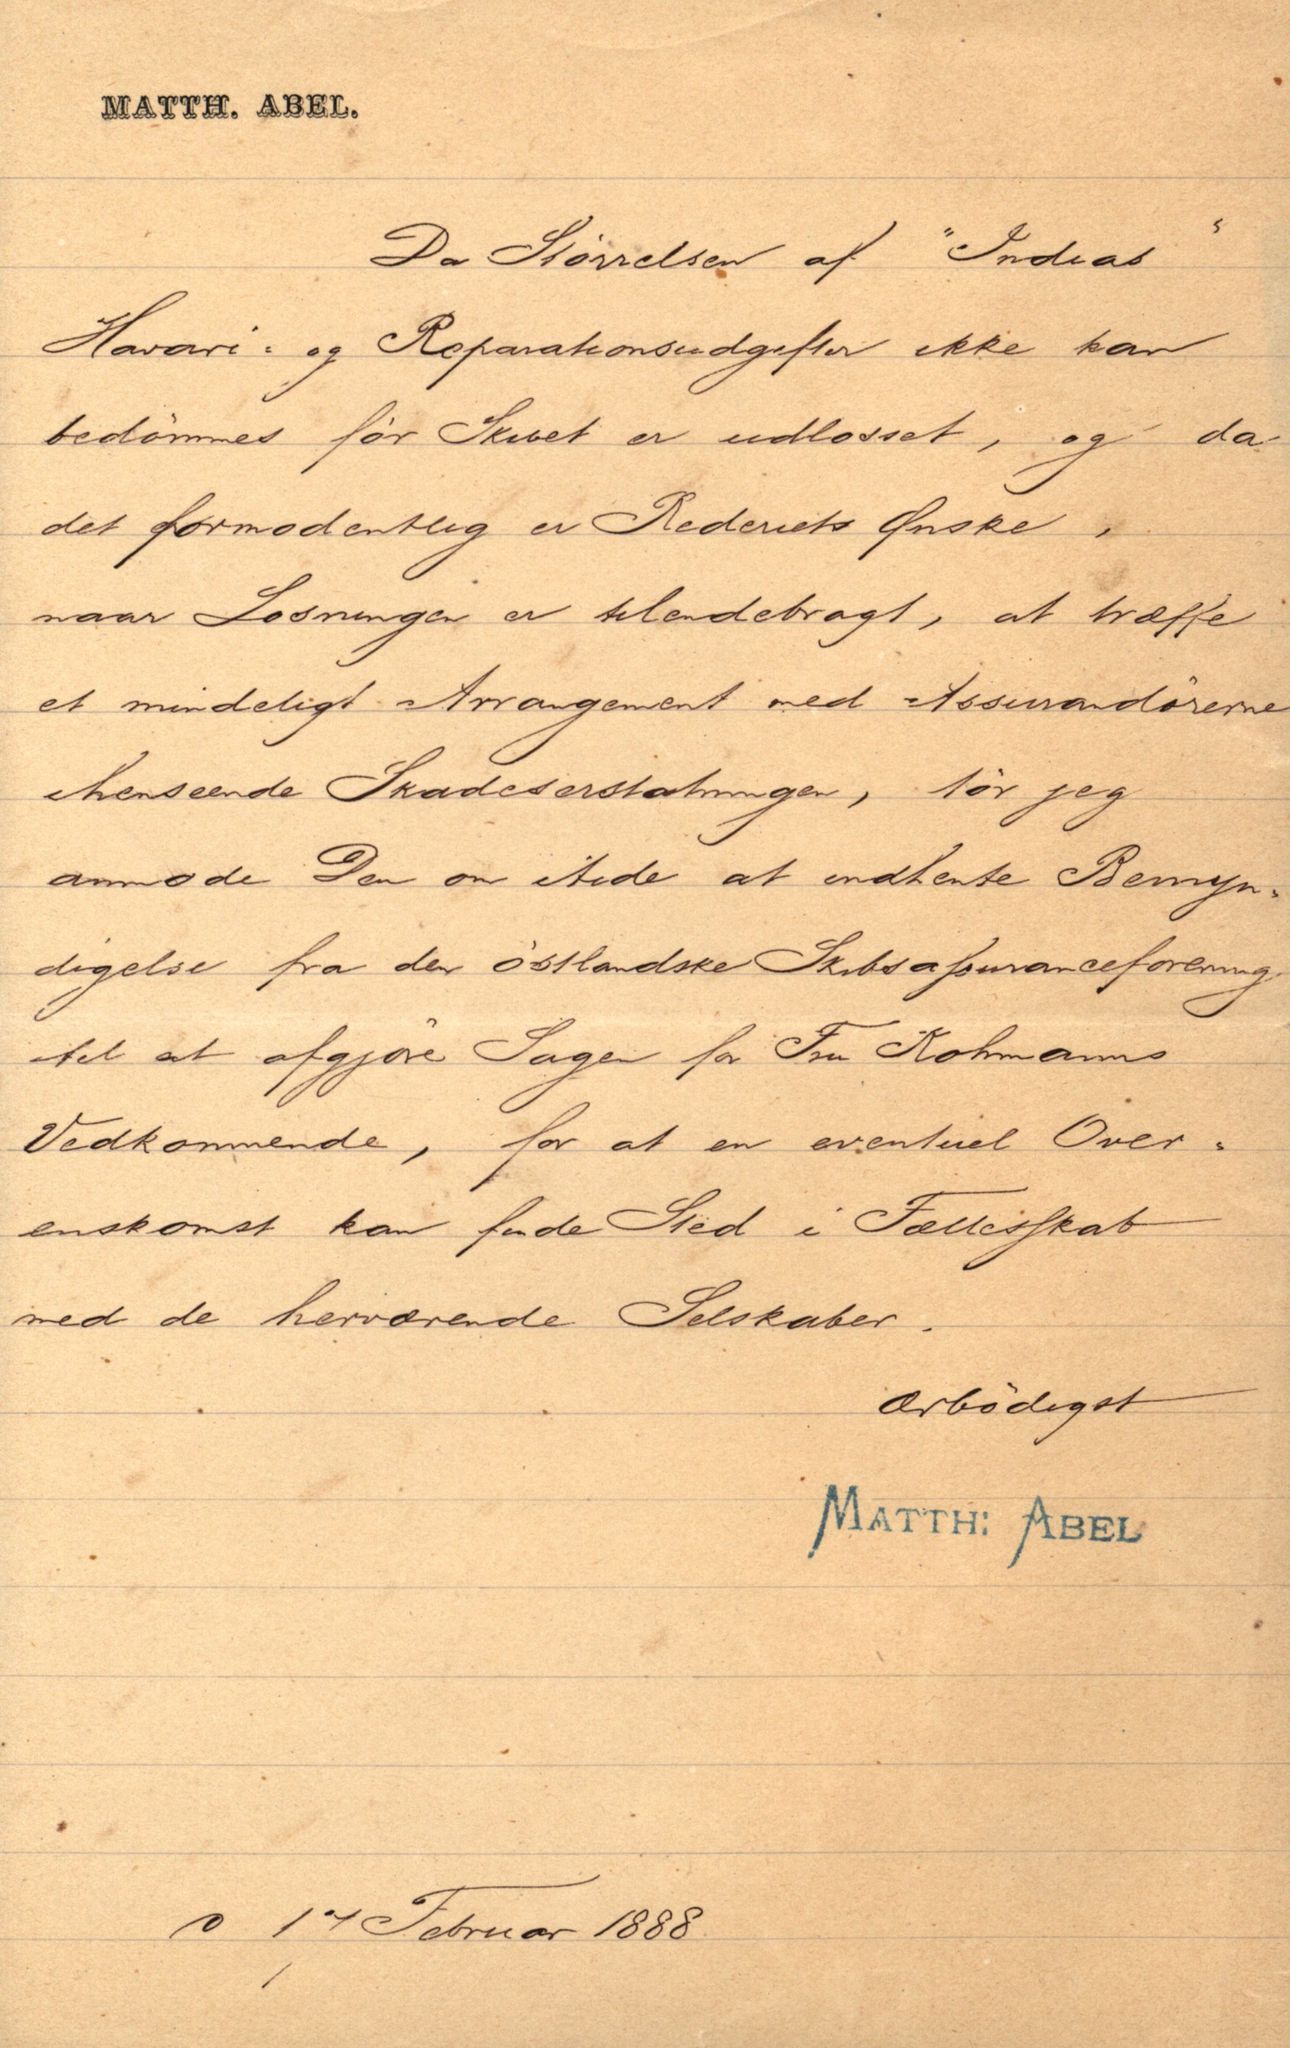 MATTH. ABEL.
Da Størrelsen af "Indias"
Havari- og Reparationsudgifter ikke kan
bedömmes för Skibet er udlosset, og da
det formodentlig er Rederiets Ønske,
naar Losningen er tilendebragt, at træffe
et mindeligt Arrangement med Assurandörerne
ihenseende Skadeserstatningen, tör jeg
anmode Dem om itide at indhente Bemyn-
digelse fra den östlandske Skibsassuranceforening
til at afgjöre Sagen for Fru Kohmanns
Vedkommende, for at en eventuel Over-
enskomst kan finde Sted i Fællesskab
med de herværende Selskaber.
Ærbödigst
MATTH: ABEL
17 Februar 1888